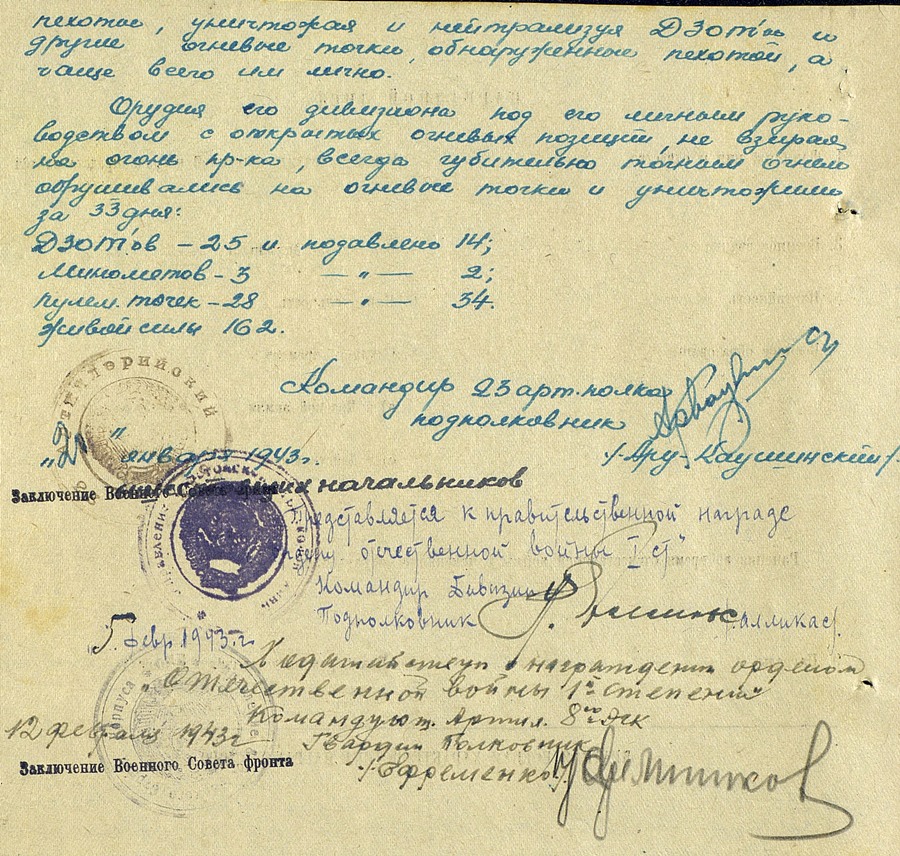 пехотое, уничтожая и нейтрализуя ДЗОТ'ов и
другие огневые точки, обнаруженные пехотой, а
чаще всего им лично.
Орудия его дивизиона под его личным руко-
водством с открытых огневых позиций, не взирая
на огонь пр-ка, всегда губительно точным огнем
обрушивались на огневые точки и уничтожили
за 33 дня:
ДЗОТ'ов – 25 и подавлено 14;
Минометов – 3 — " — 2;
пулем. точек – 28 — " — 34.
живой силы 162.
Командир 23 арт. полка
подполковник
/-Ару-Каушинский/
"21" января 1943 г.
Артиллерийский
начальников
Заключение Военного Совета
Представляется к правительственной награде
отечественной войны I ст"
Командир Дивизии
Подполковник
"5" февр 1943 г.
Ходатайствую о награждении орденом
"Отечественной войны 1й степени"
Командующ. Артил. 8го ЭСК
12 февраля 1943 г
Гвардии Полковник
/-Ефременко/
Заключение Военного Совета фронта